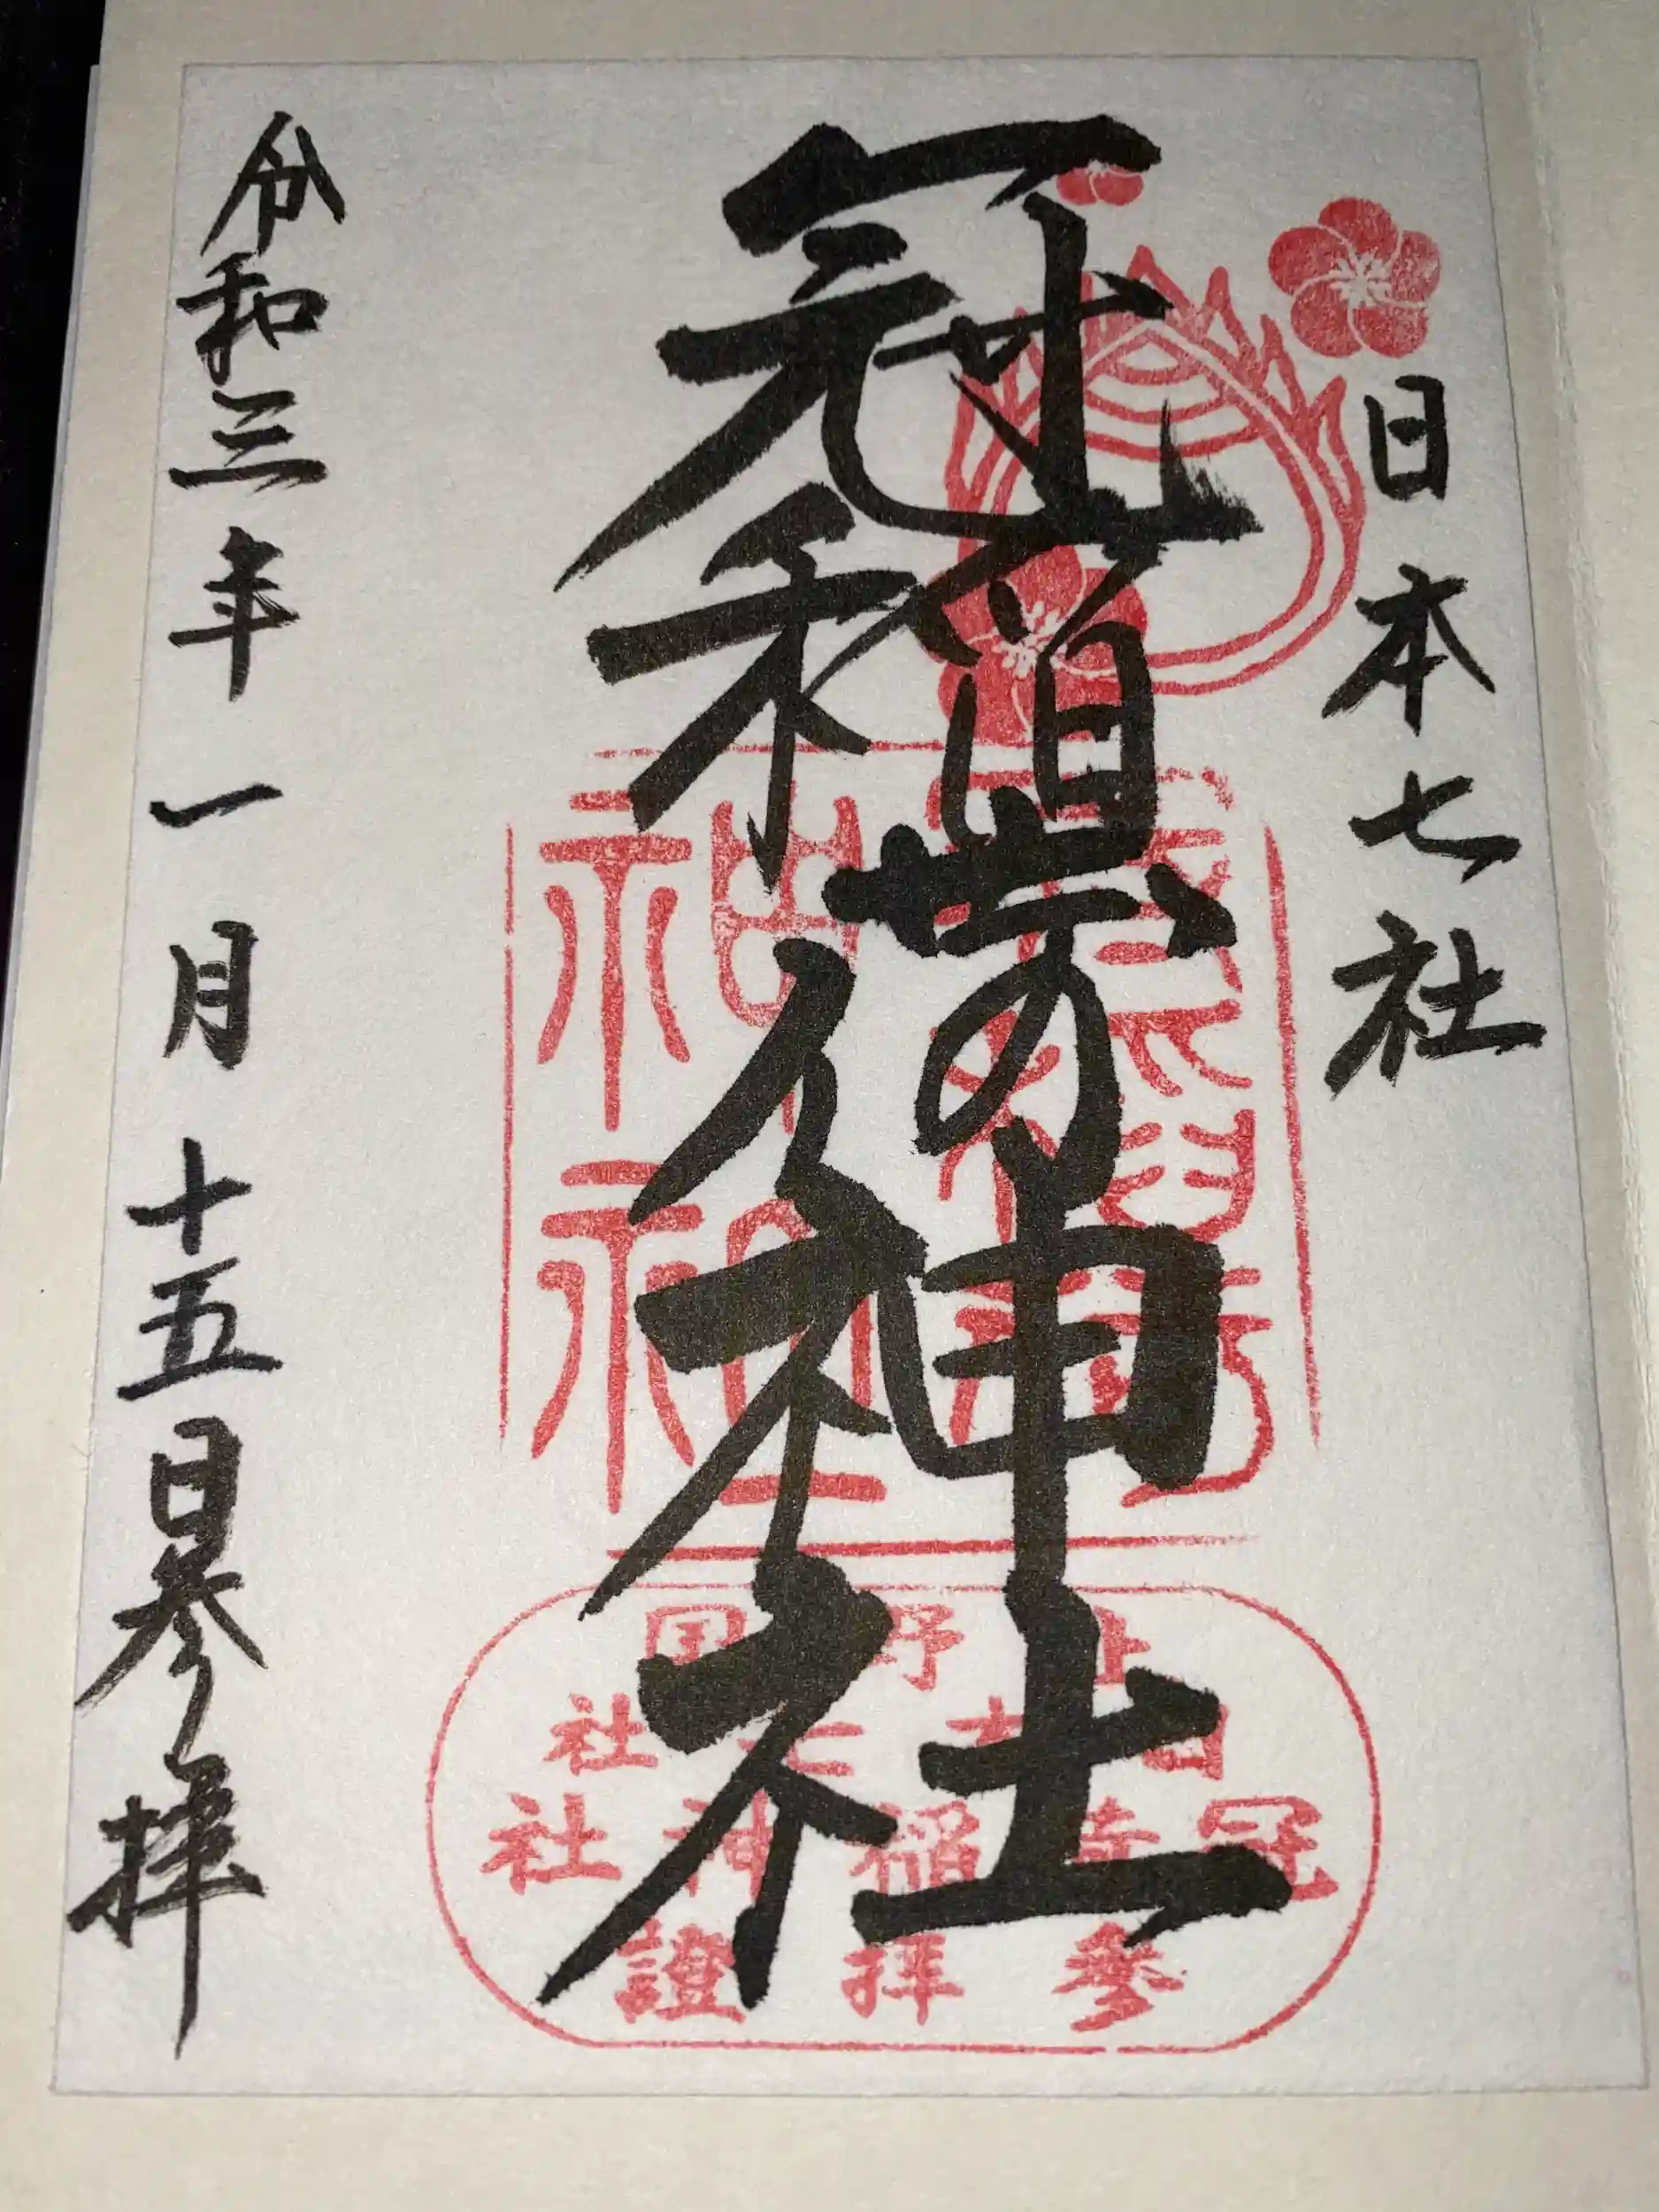 日本七社
冠稲荷神社
令和三年一月十五日参拝
上野国
日本七社
冠稲荷神社
参拝證